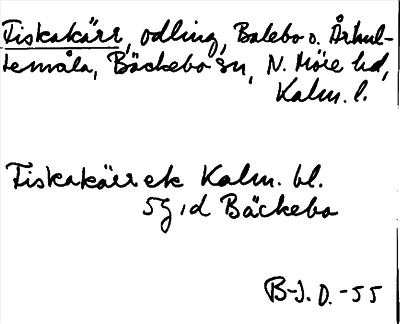 Fiskakärr, odling, Balebo o. Århul-
temåla, Bäckebo sn, N. Möre hd,
Kalm. l.
Fiskakärr ek Kalm. bl.
5g, d Bäckebo
B-J. O. -55